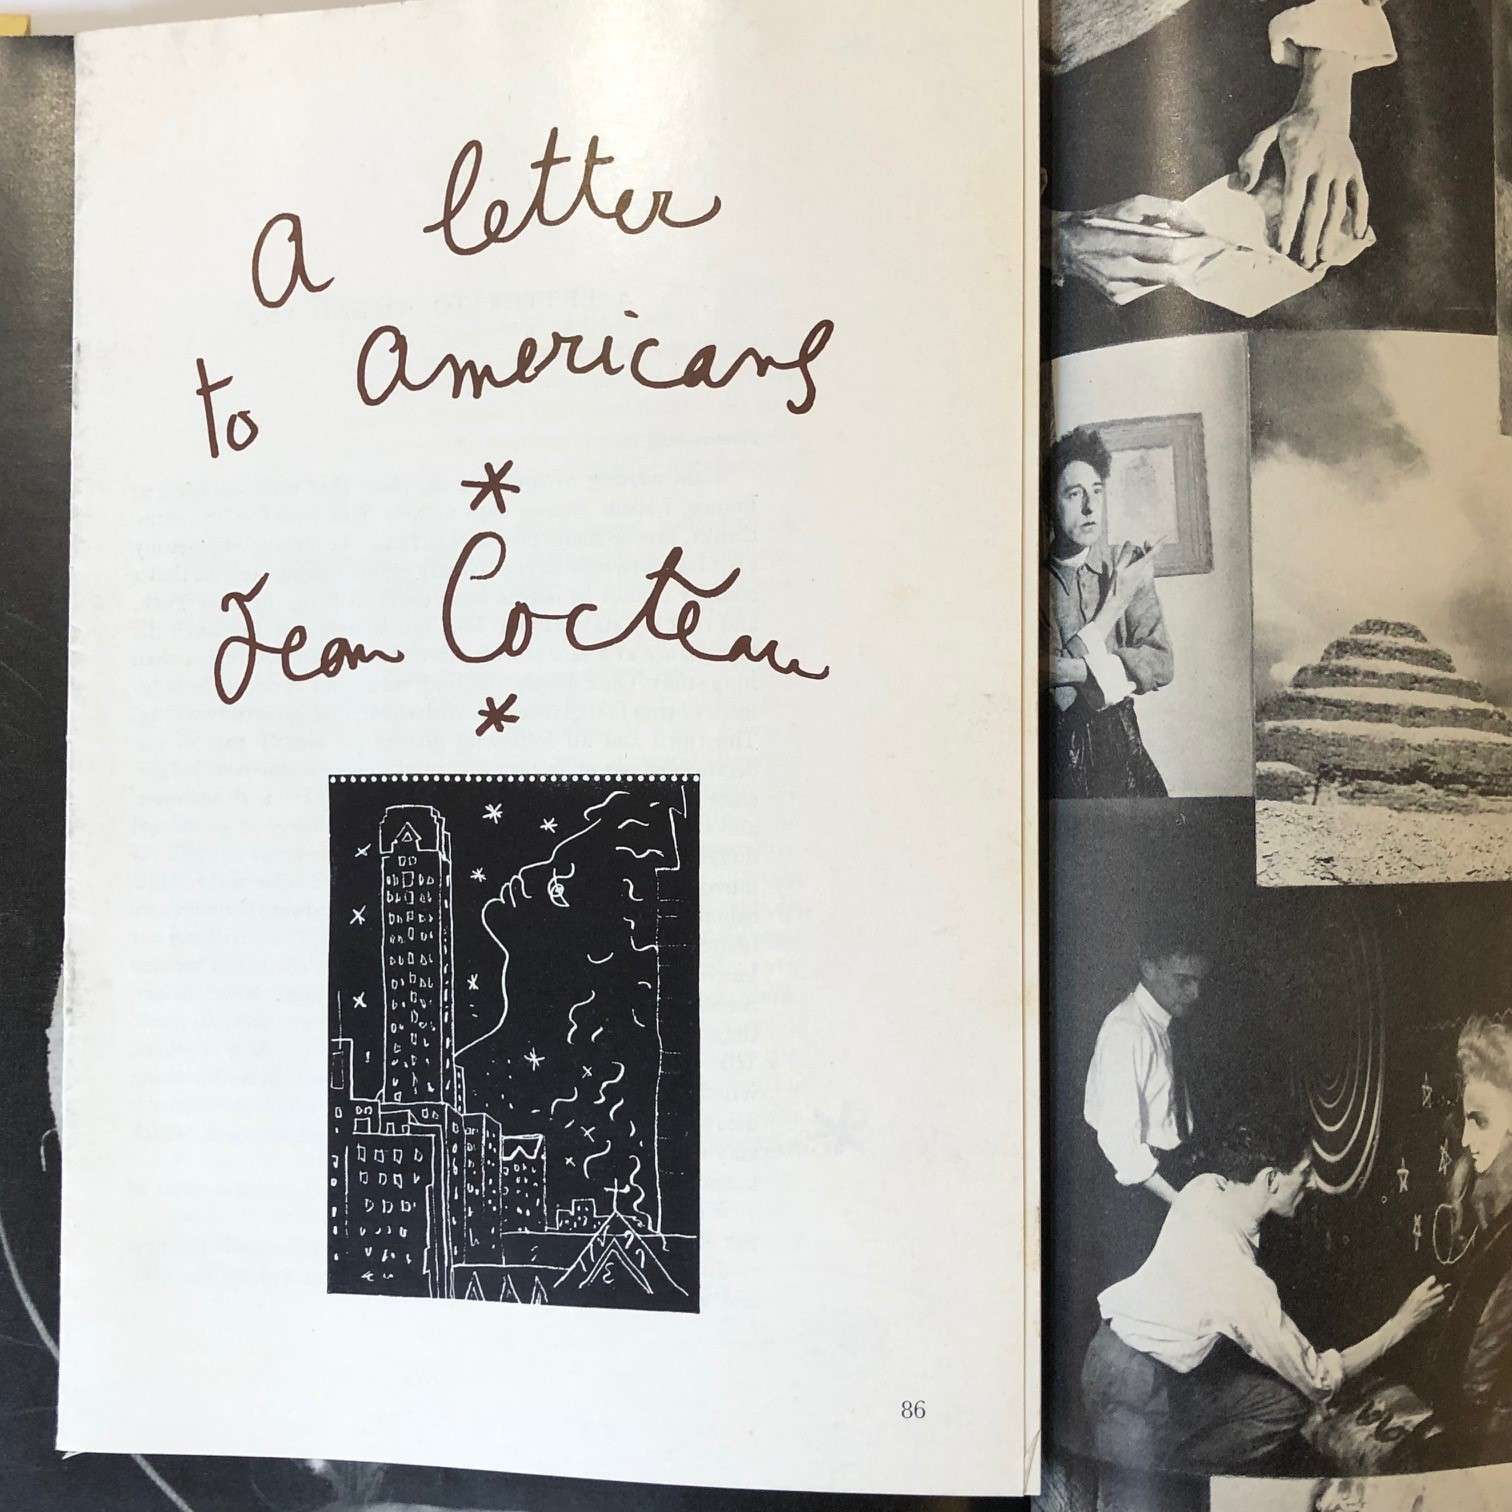 a letter
to americans
*
Jean Cocteau
*
86